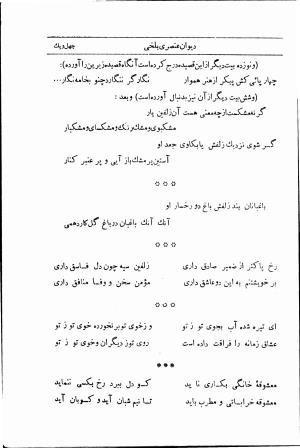 دیوان عنصری بلخی چهل و یک
(و نوزده بیت دیگر از این قصیده درج کرده است آنگاه قصیده زیرین را آورده):
چهار پائی کش پیکر از هنر هموار نگار گر ننگارد چنو بخامه نگار...
(و شش بیت دیگر از آن نیز بدنبال آورده است) و بعد:
گر نه مشکست از چه معنی هست آن زلفین یار
مشکبوی و مشکرنگ و مشکسای و مشکبار
گسر شوی نزدیك زلفش یا بکاوی جعد او
آستین پر مشك باز آیی و پر عنبر کنار
***
باغبانان بند زلفش باغ دو رخسار او
آنك آنك باغبان در باغ گل کارد همی
***
رخ پاکتر از ضمیر صادق داری زلفین سیه چون دل فاسق داری
بر خویشتنم به این دو عاشق داری مؤمن سخن و وفا منافق داری
***
ای تیره شده آب بجوی تو ز تو و ز خوی تو بر نخورده خوی تو ز تو
عشاق زمانه را فراقت داده است روی تو ز دیگران و خوی تو ز تو
***
معشوقهٔ خانگی بکاری نا ید کسو دل ببرد رخ بکسی ننماید
معشوقه خراباتی و مطرب باید تا نیم شبان آید و کوبان آید